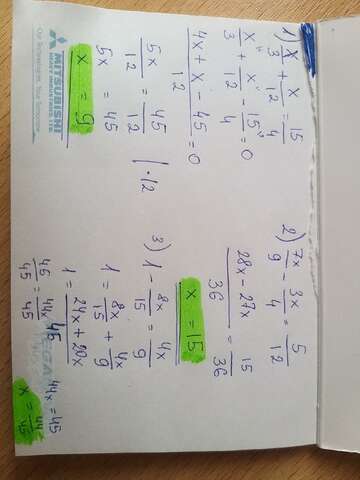 1) x/3 + x/12 = 15/4
x/3 + x/12 - 15/4 = 0
4x + x - 45 / 12 = 0
5x/12 = 45/12 | · 12
5x = 45
x = 9
2) 7x/9 - 3x/4 = 5/12
28x - 27x / 36 = 15/36
x = 15
3) 1 - 8x/15 = 4x/9
1 = 8x/15 + 4x/9
1 = 24x + 20x / 45
45/45 = 44x/45
44x = 45
x = 44/45
MITSUBISHI
HEAVY INDUSTRIES, LTD.
Our Technologies, Your Tomorrow